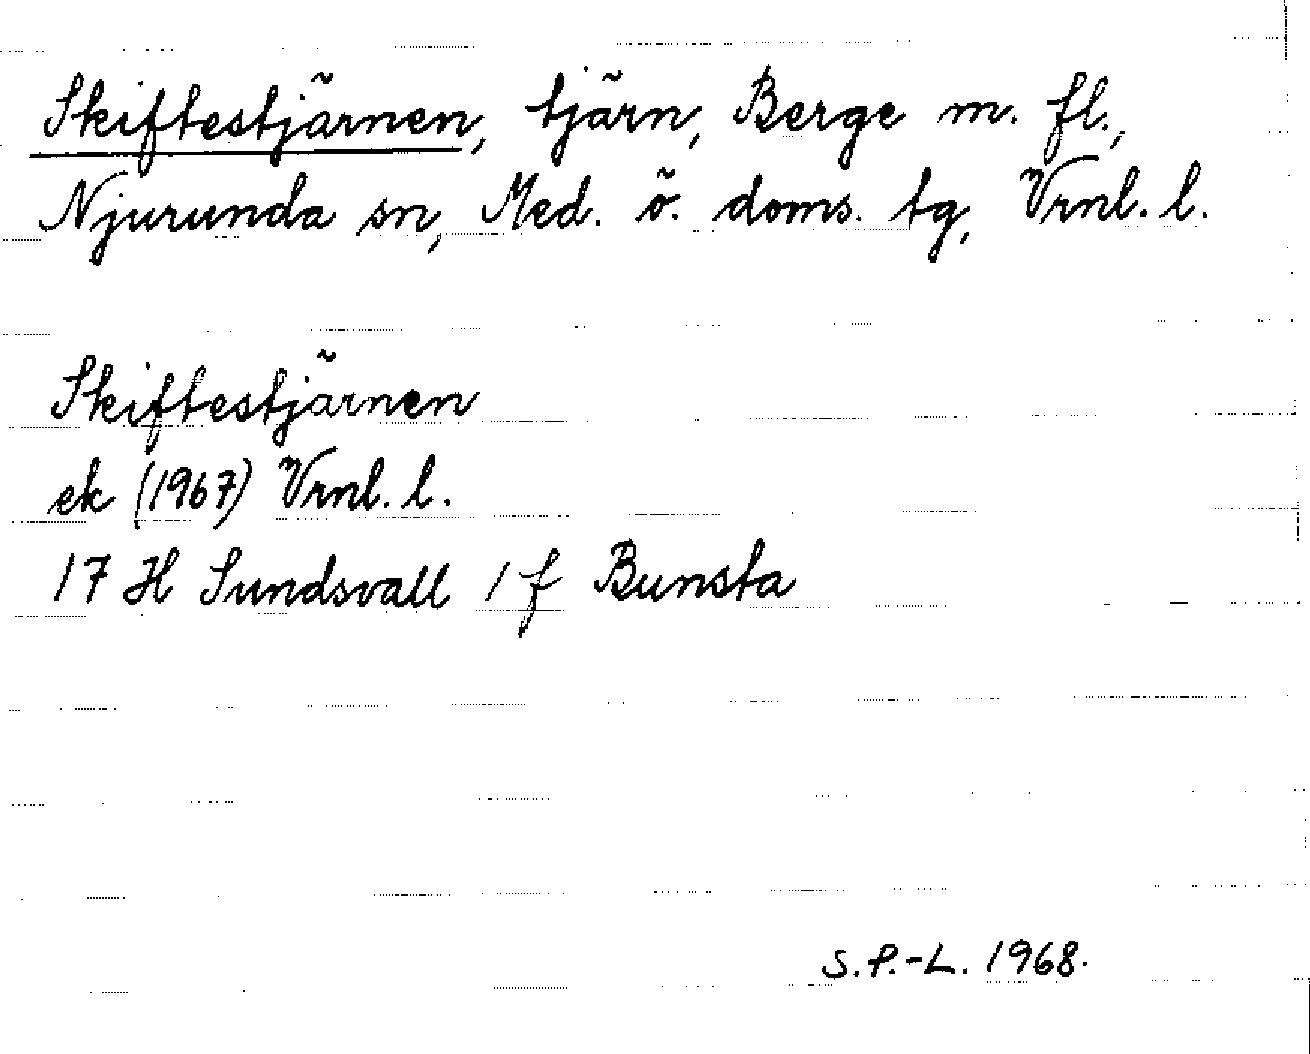 Skiftestjärnen, tjärn, Berge m. fl.,
Njurunda sn, Med. ö. doms. tg, Vrnl. l.
Skiftestjärnen
ek (1967) Vrnl. l.
17 H Sundsvall 1 f Bunsta
S.P.-L. 1968.